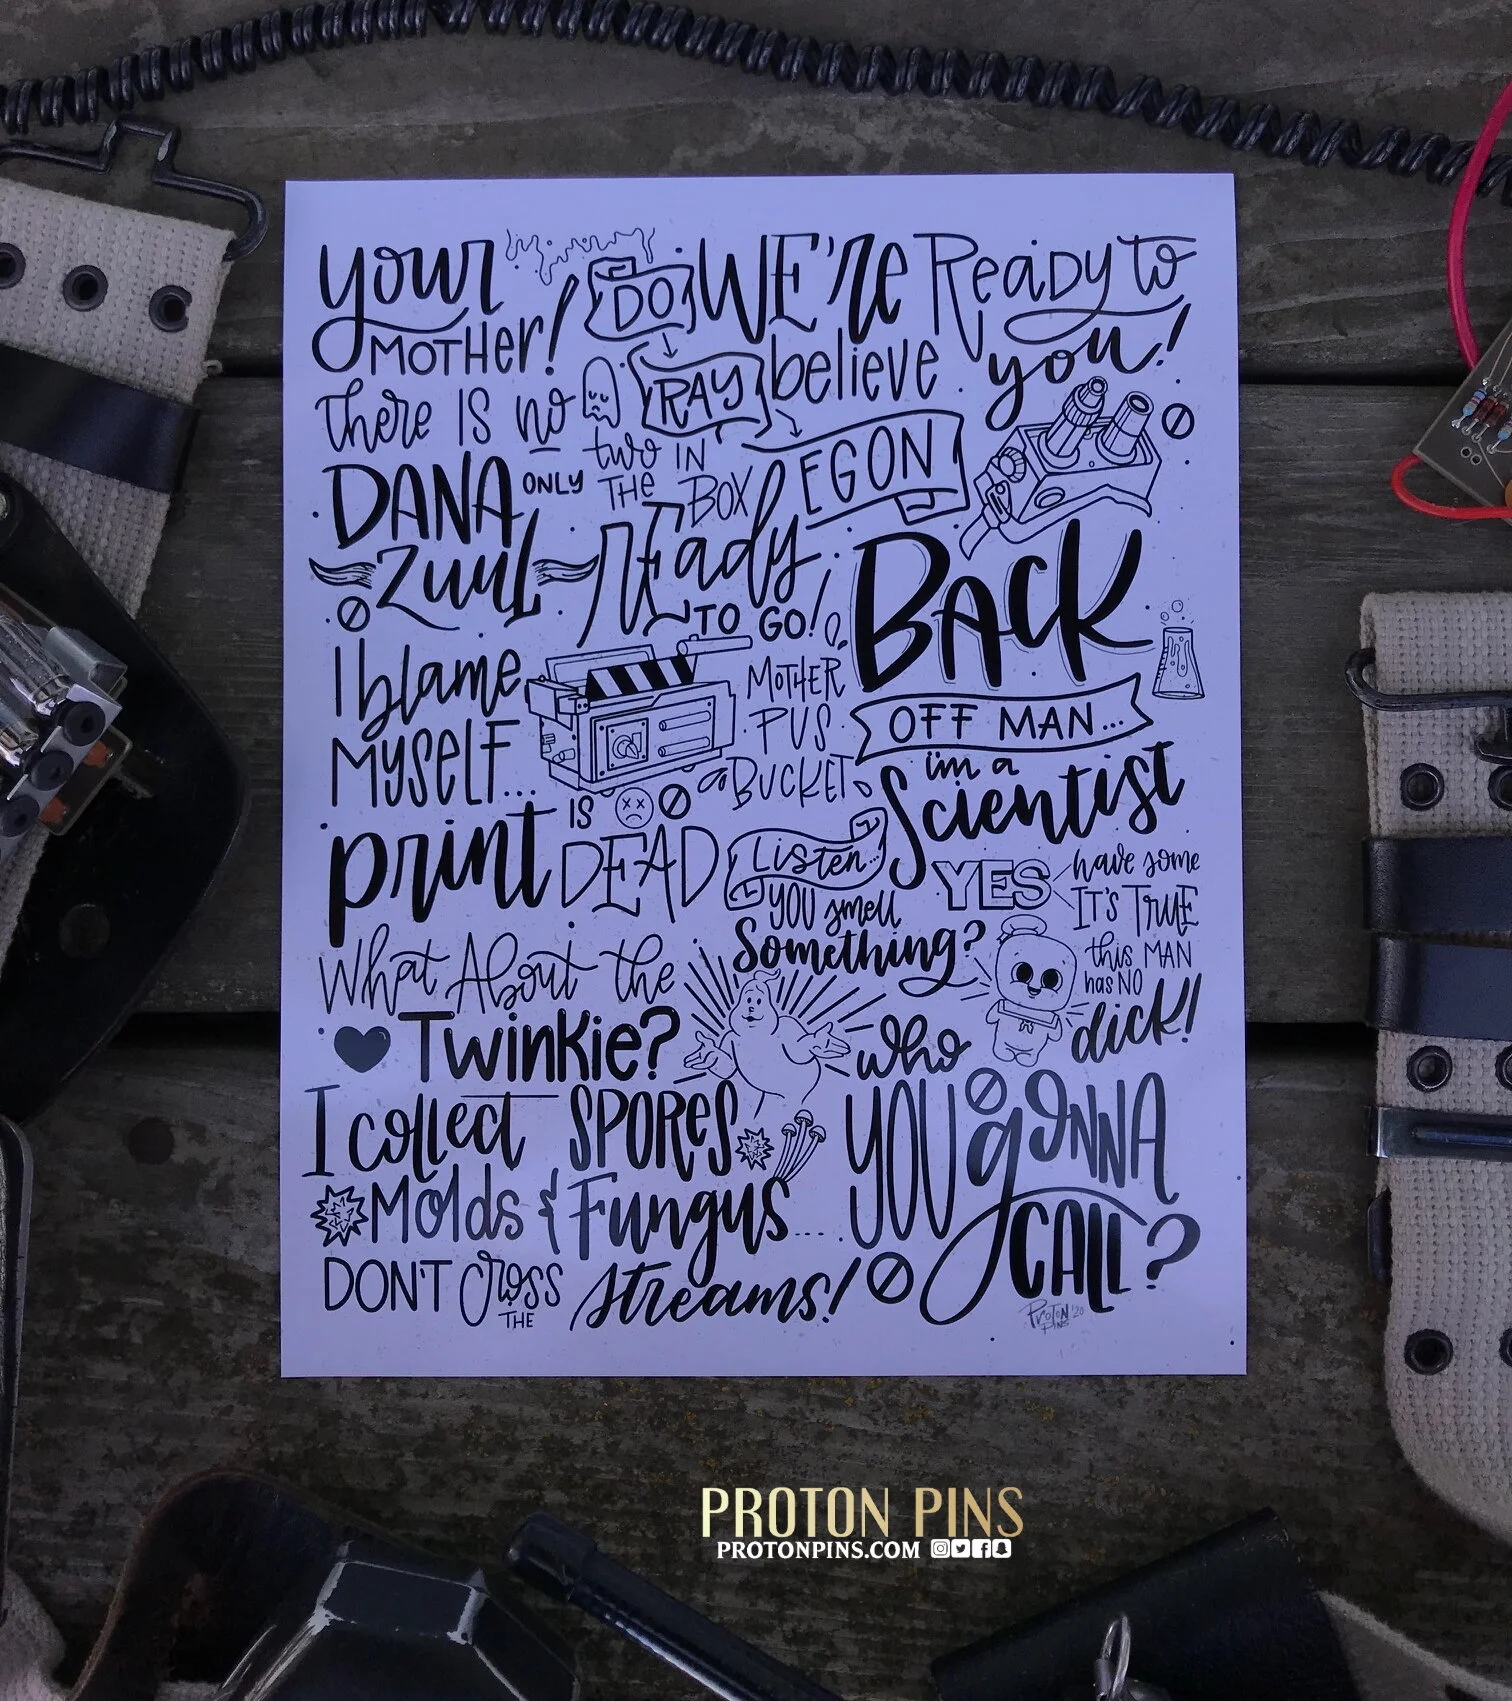 your
MOTHer!
DO
RAY
EGON
WE're Ready to
believe you!
there IS no
DANA
ONLY
Zuul
two IN
THE BOX
rEady
TO GO!
BACK
OFF MAN...
i'm a
Scientist
I blame
MYSELF...
MOTHER
PUS
BUCKET
print IS
DEAD
Listen...
YOU smell
Something?
YES
have some
IT'S TRUE
this MAN
has NO
dick!
What About the
Twinkie?
I collect SPORES
Molds & Fungus....
who
YOU gONNA
CALL?
DON'T Cross
THE
streams!
PROTON '20
PINS
PROTON PINS
PROTONPINS.COM